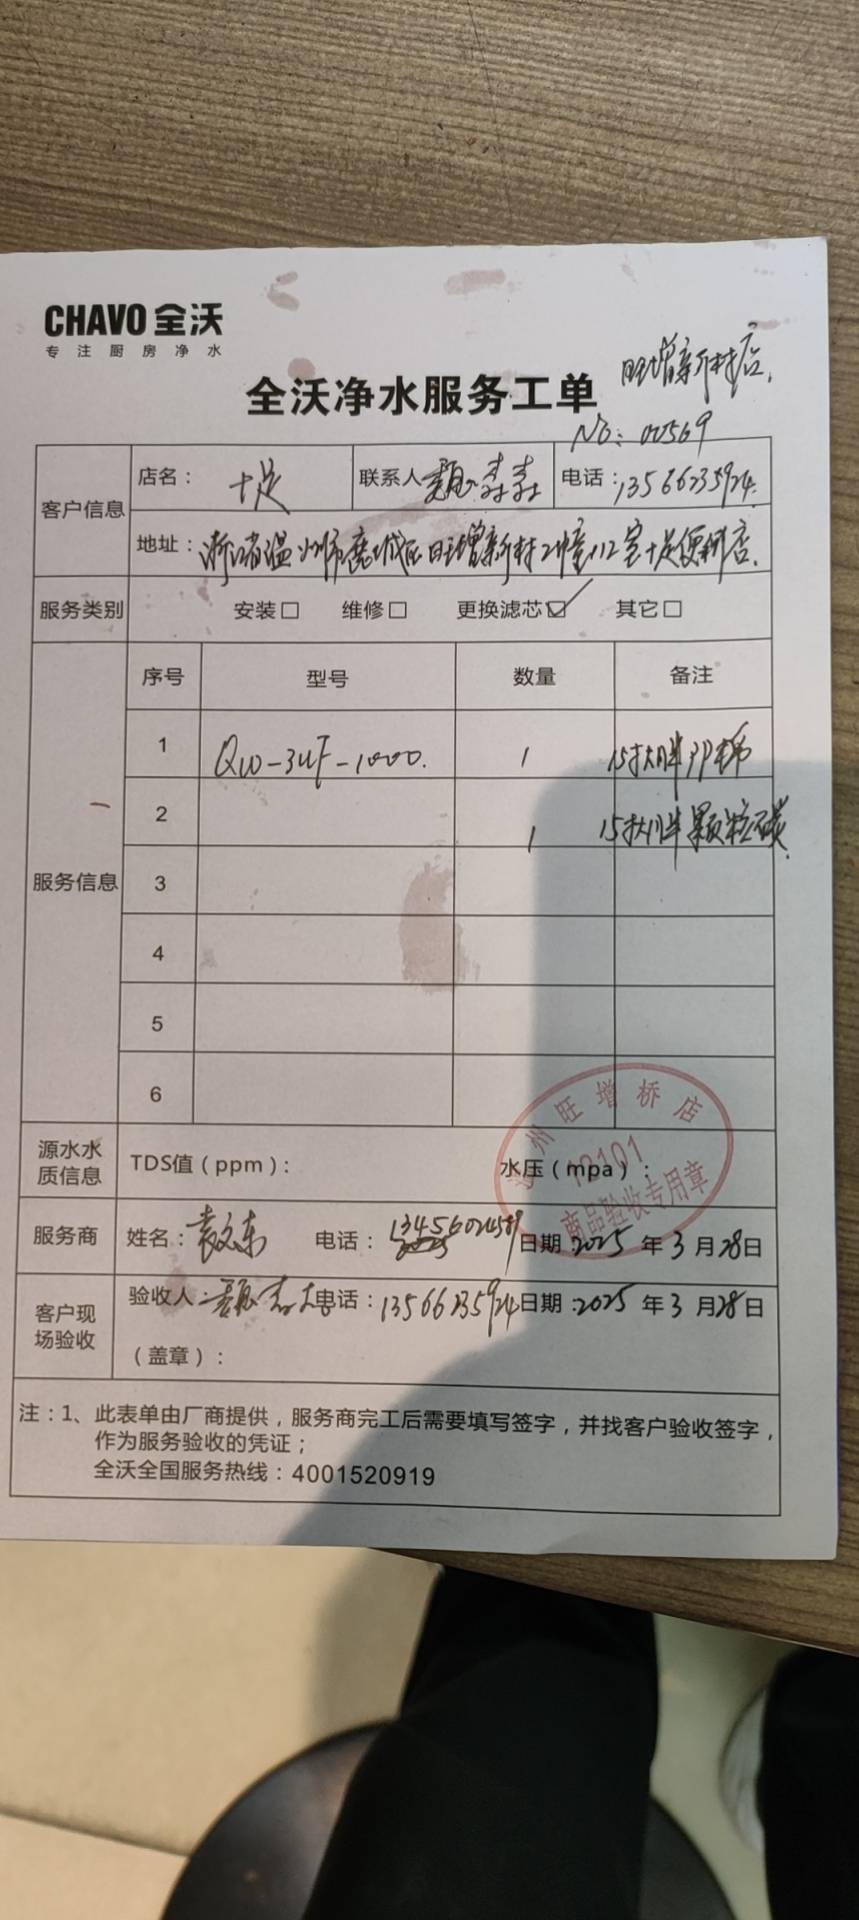 CHAVO 全沃
专注厨房净水
旺增新村店.
全沃净水服务工单
No: 00569
客户信息 店名： 十足 联系人 电话：13566235924.
地址：浙江省温州市鹿城区旺增新村2幢112室十足便利店.
服务类别 安装□ 维修□ 更换滤芯☑ 其它□
服务信息 序号 型号 数量 备注
1 QW-3UF-1000. 1 15寸大胖PP棉
2 1 15寸大胖颗粒碳.
3
4
5
6
温州旺增桥店
12101
商品验收专用章
源水水质信息 TDS值（ppm）： 水压（mpa）：
服务商 姓名：袁文东 电话：13456024589 日期：2025 年 3 月 28 日
客户现场验收 验收人： 电话：13566235924 日期：2025 年 3 月 28 日
（盖章）：
注：1、此表单由厂商提供，服务商完工后需要填写签字，并找客户验收签字，
作为服务验收的凭证；
全沃全国服务热线：4001520919